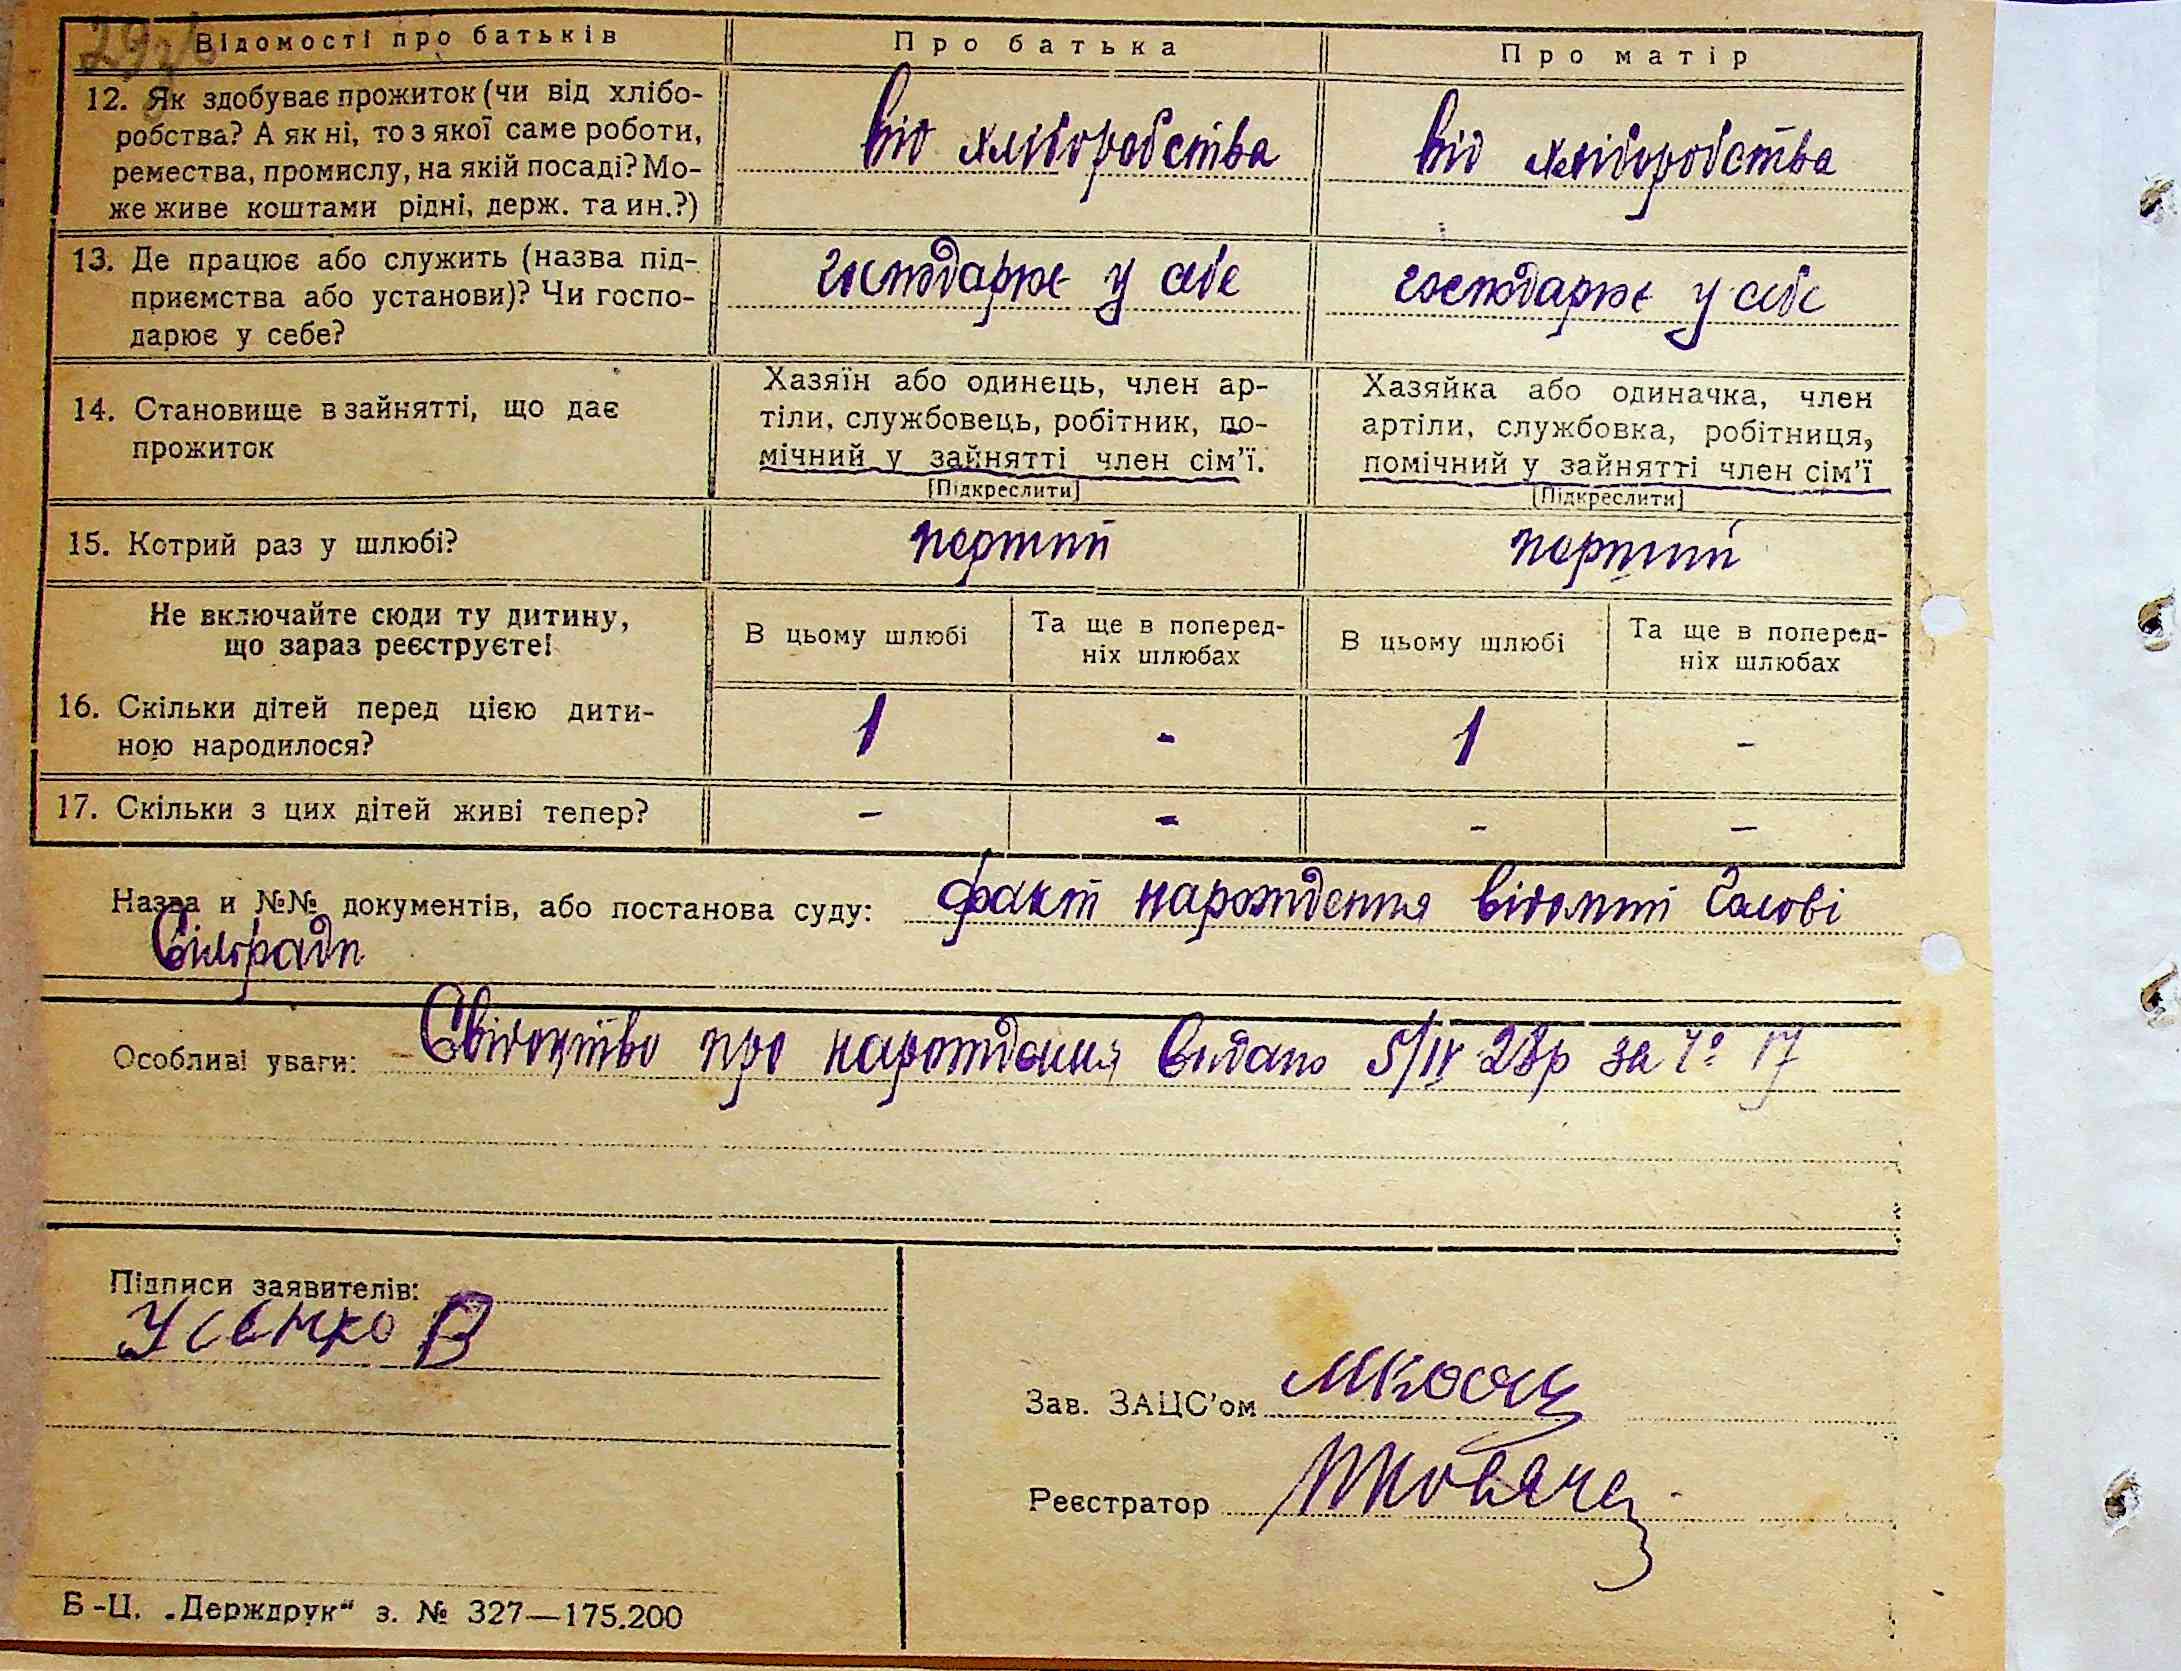 Відомості про батьків Про батька Про матір
12. Як здобуває прожиток (чи від хлібо-
робства? А як ні, то з якої саме роботи,
ремества, промислу, на якій посаді? Мо-
же живе коштами рідні, держ. та ин.?)
від хліборобства від хліборобства
13. Де працює або служить (назва під-
приємства або установи)? Чи госпо-
дарює у себе?
господарює у себе господарює у себе
14. Становище в зайнятті, що дає
прожиток
Хазяїн або одинець, член ар-
тіли, службовець, робітник, по-
мічний у зайнятті член сім'ї.
[Підкреслити]
Хазяйка або одиначка, член
артіли, службовка, робітниця,
помічний у зайнятті член сім'ї
[Підкреслити]
15. Котрий раз у шлюбі? перший перший
Не включайте сюди ту дитину,
що зараз реєструєте!
В цьому шлюбі
Та ще в поперед-
ніх шлюбах
В цьому шлюбі
Та ще в поперед-
ніх шлюбах
16. Скільки дітей перед цією дити-
ною народилося?
1 - 1 -
17. Скільки з цих дітей живі тепер? - - - -
Назва и №№ документів, або постанова суду: факт нарождення відомий Голові
Сільради
Особливі уваги: Свідоцтво про нарождення видано 5/IV 28р за № 17
Підписи заявителів:
Усенко В
Зав. ЗАЦС'ом
Реєстратор
Б-Ц. „Держдрук“ з. № 327—175.200